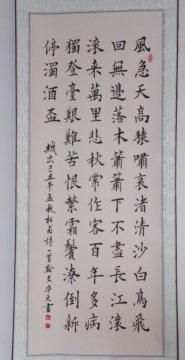 風急天高猿嘯哀渚清沙白鳥飛
回無邊落木蕭蕭下不盡長江滾
滾来萬里悲秋常作客百年多病
獨登臺艱難苦恨繁霜鬢潦倒新
停濁酒盃
己丑年孟秋杜甫詩一首
書